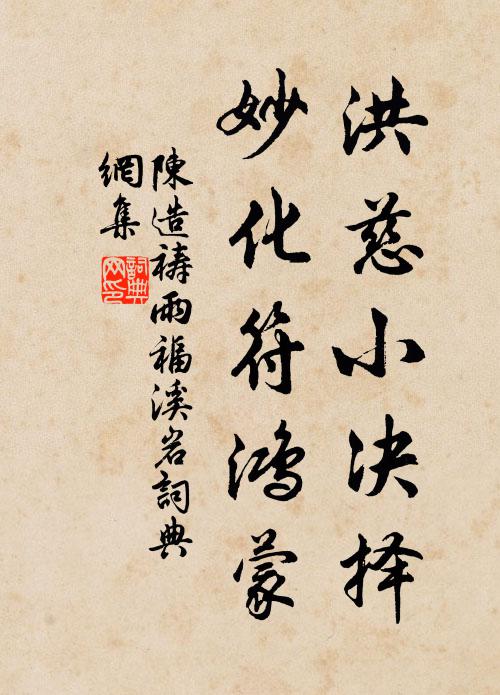 洪慈小决择
妙化符鸿蒙
陳造禱雨福溪岩詞典
網集
詞典
网印